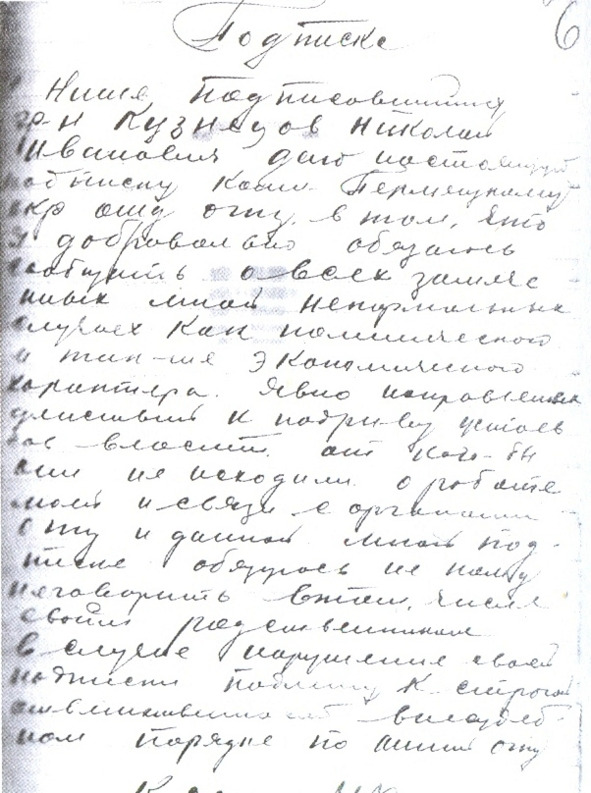 6
Подписка
Ниже подписовшийся
гр-н Кузнецов Николай
Иванович даю настоящую
подписку Коми-Пермяцкому
окр отд огпу в том, что
я добровольно обязаюсь
сообщить о всех замече
нных мной ненормальных
случаех как политического
и так-же экономического
характера. Явно направленных
действий к подрыву устоев
сов власти от кого-бы
они не исходили о работе
моей и связи с органами
огпу и данной мной под-
писке обязуюсь не кому
неговорить втом числе
своим родственникам
в случае нарушения своей
подписки подлежу к строгой
ответственности внесудеб-
ном порядке по линии огпу